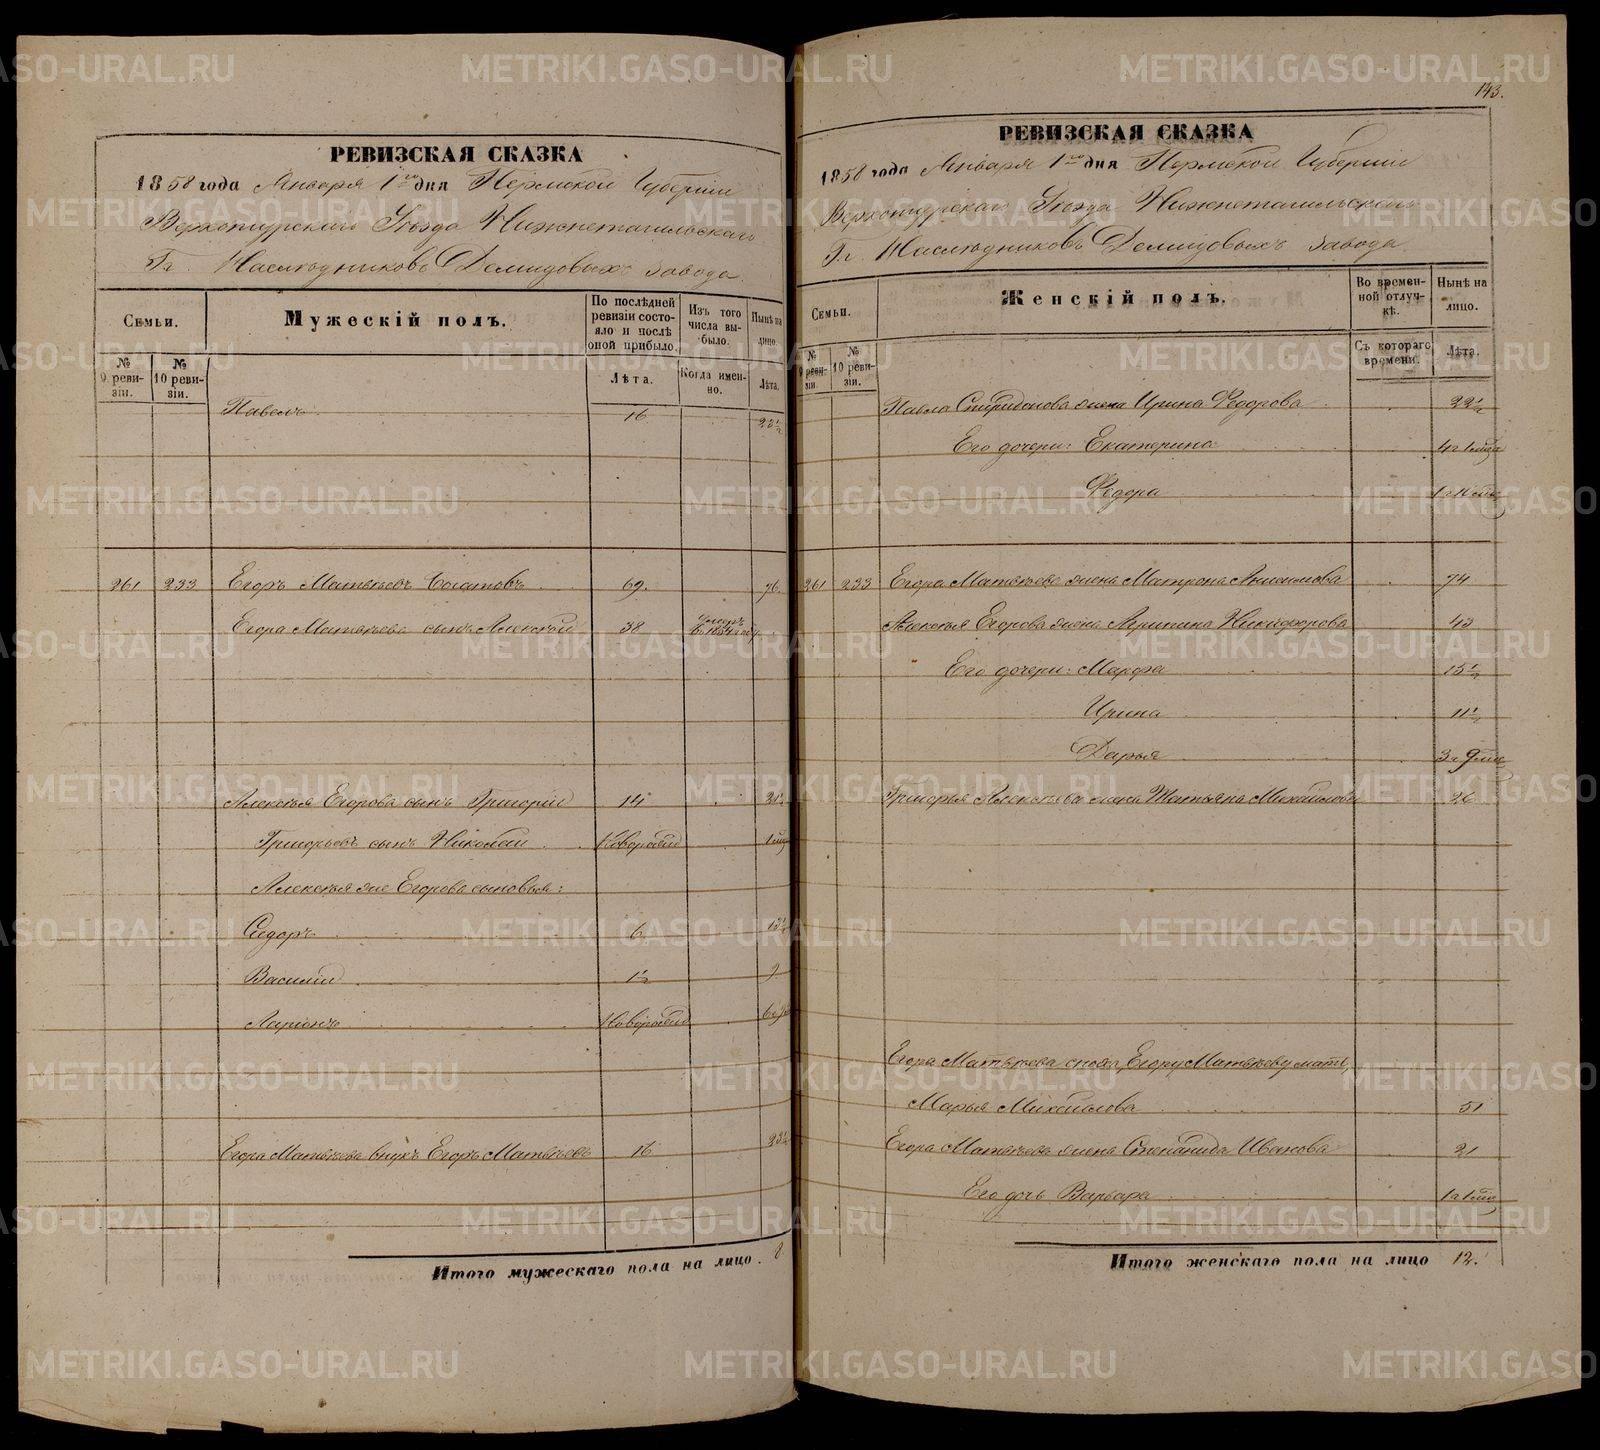 РЕВИЗСКАЯ СКАЗКА
1858 года Января 1го дня Пермской Губернии
Верхотурскаго Уѣзда Нижнетагильскаго
Гг. Наслѣдниковъ Демидовыхъ завода
Семьи.
Мужескій полъ.
По послѣдней ревизіи состояло и послѣ оной прибыло.
Изъ того числа выбыло.
Нынѣ на лицо.
№ 9 ревизіи.
№ 10 ревизіи.
Лѣта.
Когда именно.
Лѣта.
Павелъ 16 23½
261 233 Егоръ Матвѣевъ 69. 76.
Егора Матвѣева сынъ Алексѣй 38 Умеръ въ 1854 году
Алексѣя Егорова сынъ Григорій 14 21½
Григорьевъ сынъ Николай Новорожд
Алексѣя же Егорова сыновья:
Сидоръ 6 13½
Василій 1½ 9
Ларіонъ Новорожд
Егора Матвѣева внукъ Егоръ Матвѣевъ 16 23½
Итого мужескаго пола на лицо. 8
143.
РЕВИЗСКАЯ СКАЗКА
1858 года Января 1го дня Пермской Губерніи
Верхотурскаго Уѣзда Нижнетагильскаго
Гг. Наслѣдниковъ Демидовыхъ завода
Семьи.
Женскій полъ.
Во временной отлучкѣ.
Нынѣ на лицо.
№ 9 ревизіи.
№ 10 ревизіи.
Съ котораго времени.
Лѣта.
Павла Спиридонова жена Ирина Ѳедорова 22½
Его дочери: Екатерина
Ѳедора
261 233 Егора Матвѣева жена Матрена Анисимова 74
Алексѣя Егорова жена Агрипина Никифорова 43
Его дочери: Марфа 15½
Ирина 11½
Дарья
Григорья Алексѣева жена Татьяна Михайлова 26
Егора Матвѣева сноха, Егору Матвѣеву мать,
Марья Михайлова 51
Егора Матвѣева жена Степанида Иванова 21
Его дочь Варвара
Итого женскаго пола на лицо 12.
METRIKI.GASO-URAL.RU